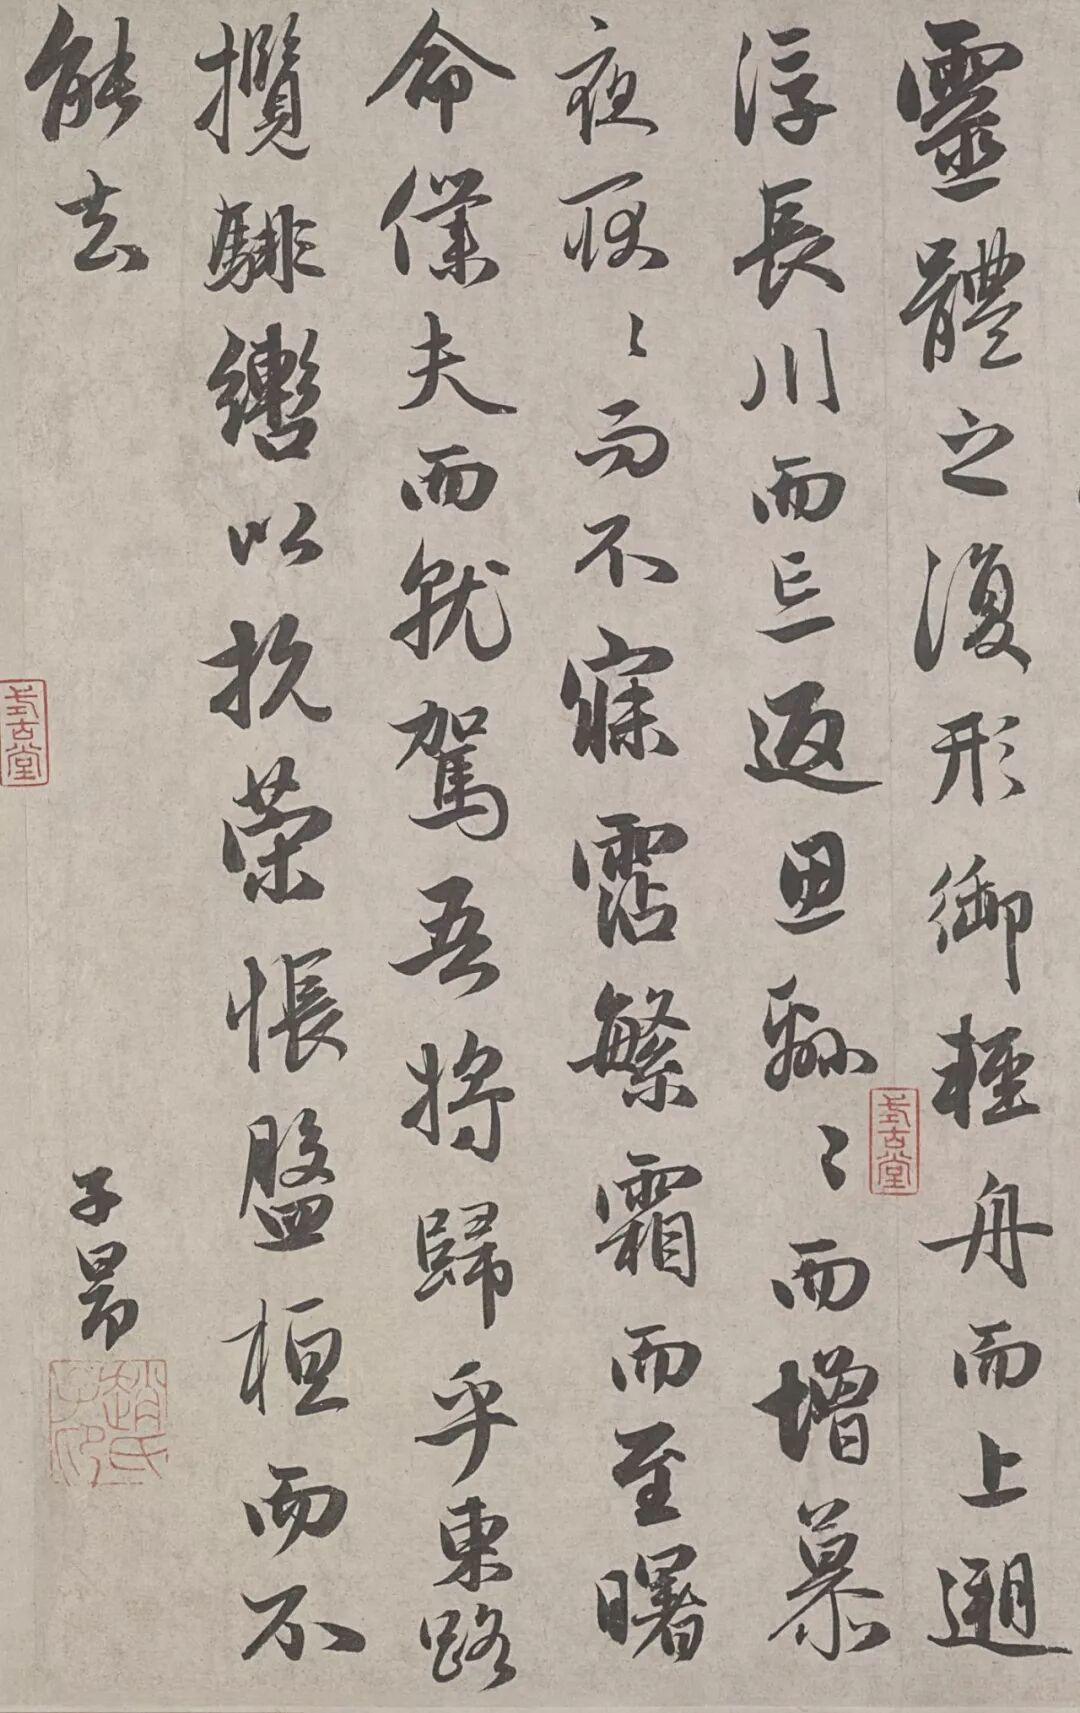 靈體之復形御輕舟而上遡
浮長川而忘返思緜〻而增慕
夜耿〻而不寐霑繁霜而至曙
命僕夫而就駕吾將歸乎東路
攬騑轡以抗策悵盤桓而不
能去
子昂
趙氏子印
式古堂
式古堂